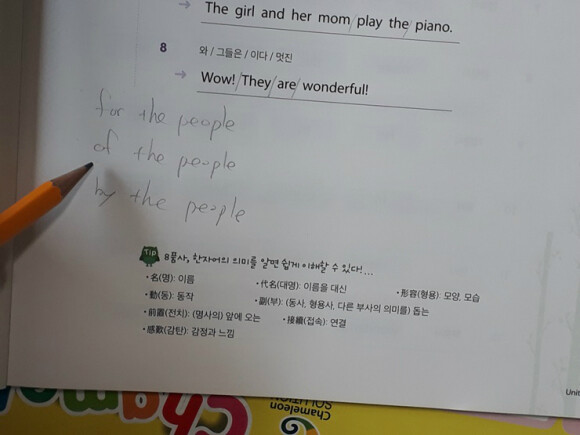 → The girl and her mom/play the/piano.
8 와 / 그들은 / 이다 / 멋진
→ Wow!/They/are/wonderful!
for the people
of the people
by the people
Tip 8품사, 한자어의 의미를 알면 쉽게 이해할 수 있다!...
•名(명): 이름 •代名(대명): 이름을 대신 •形容(형용): 모양, 모습
•動(동): 동작 •副(부): (동사, 형용사, 다른 부사의 의미를) 돕는
•前置(전치): (명사의) 앞에 오는 •接續(접속): 연결
•感歎(감탄): 감정과 느낌
Unit
Chameleon